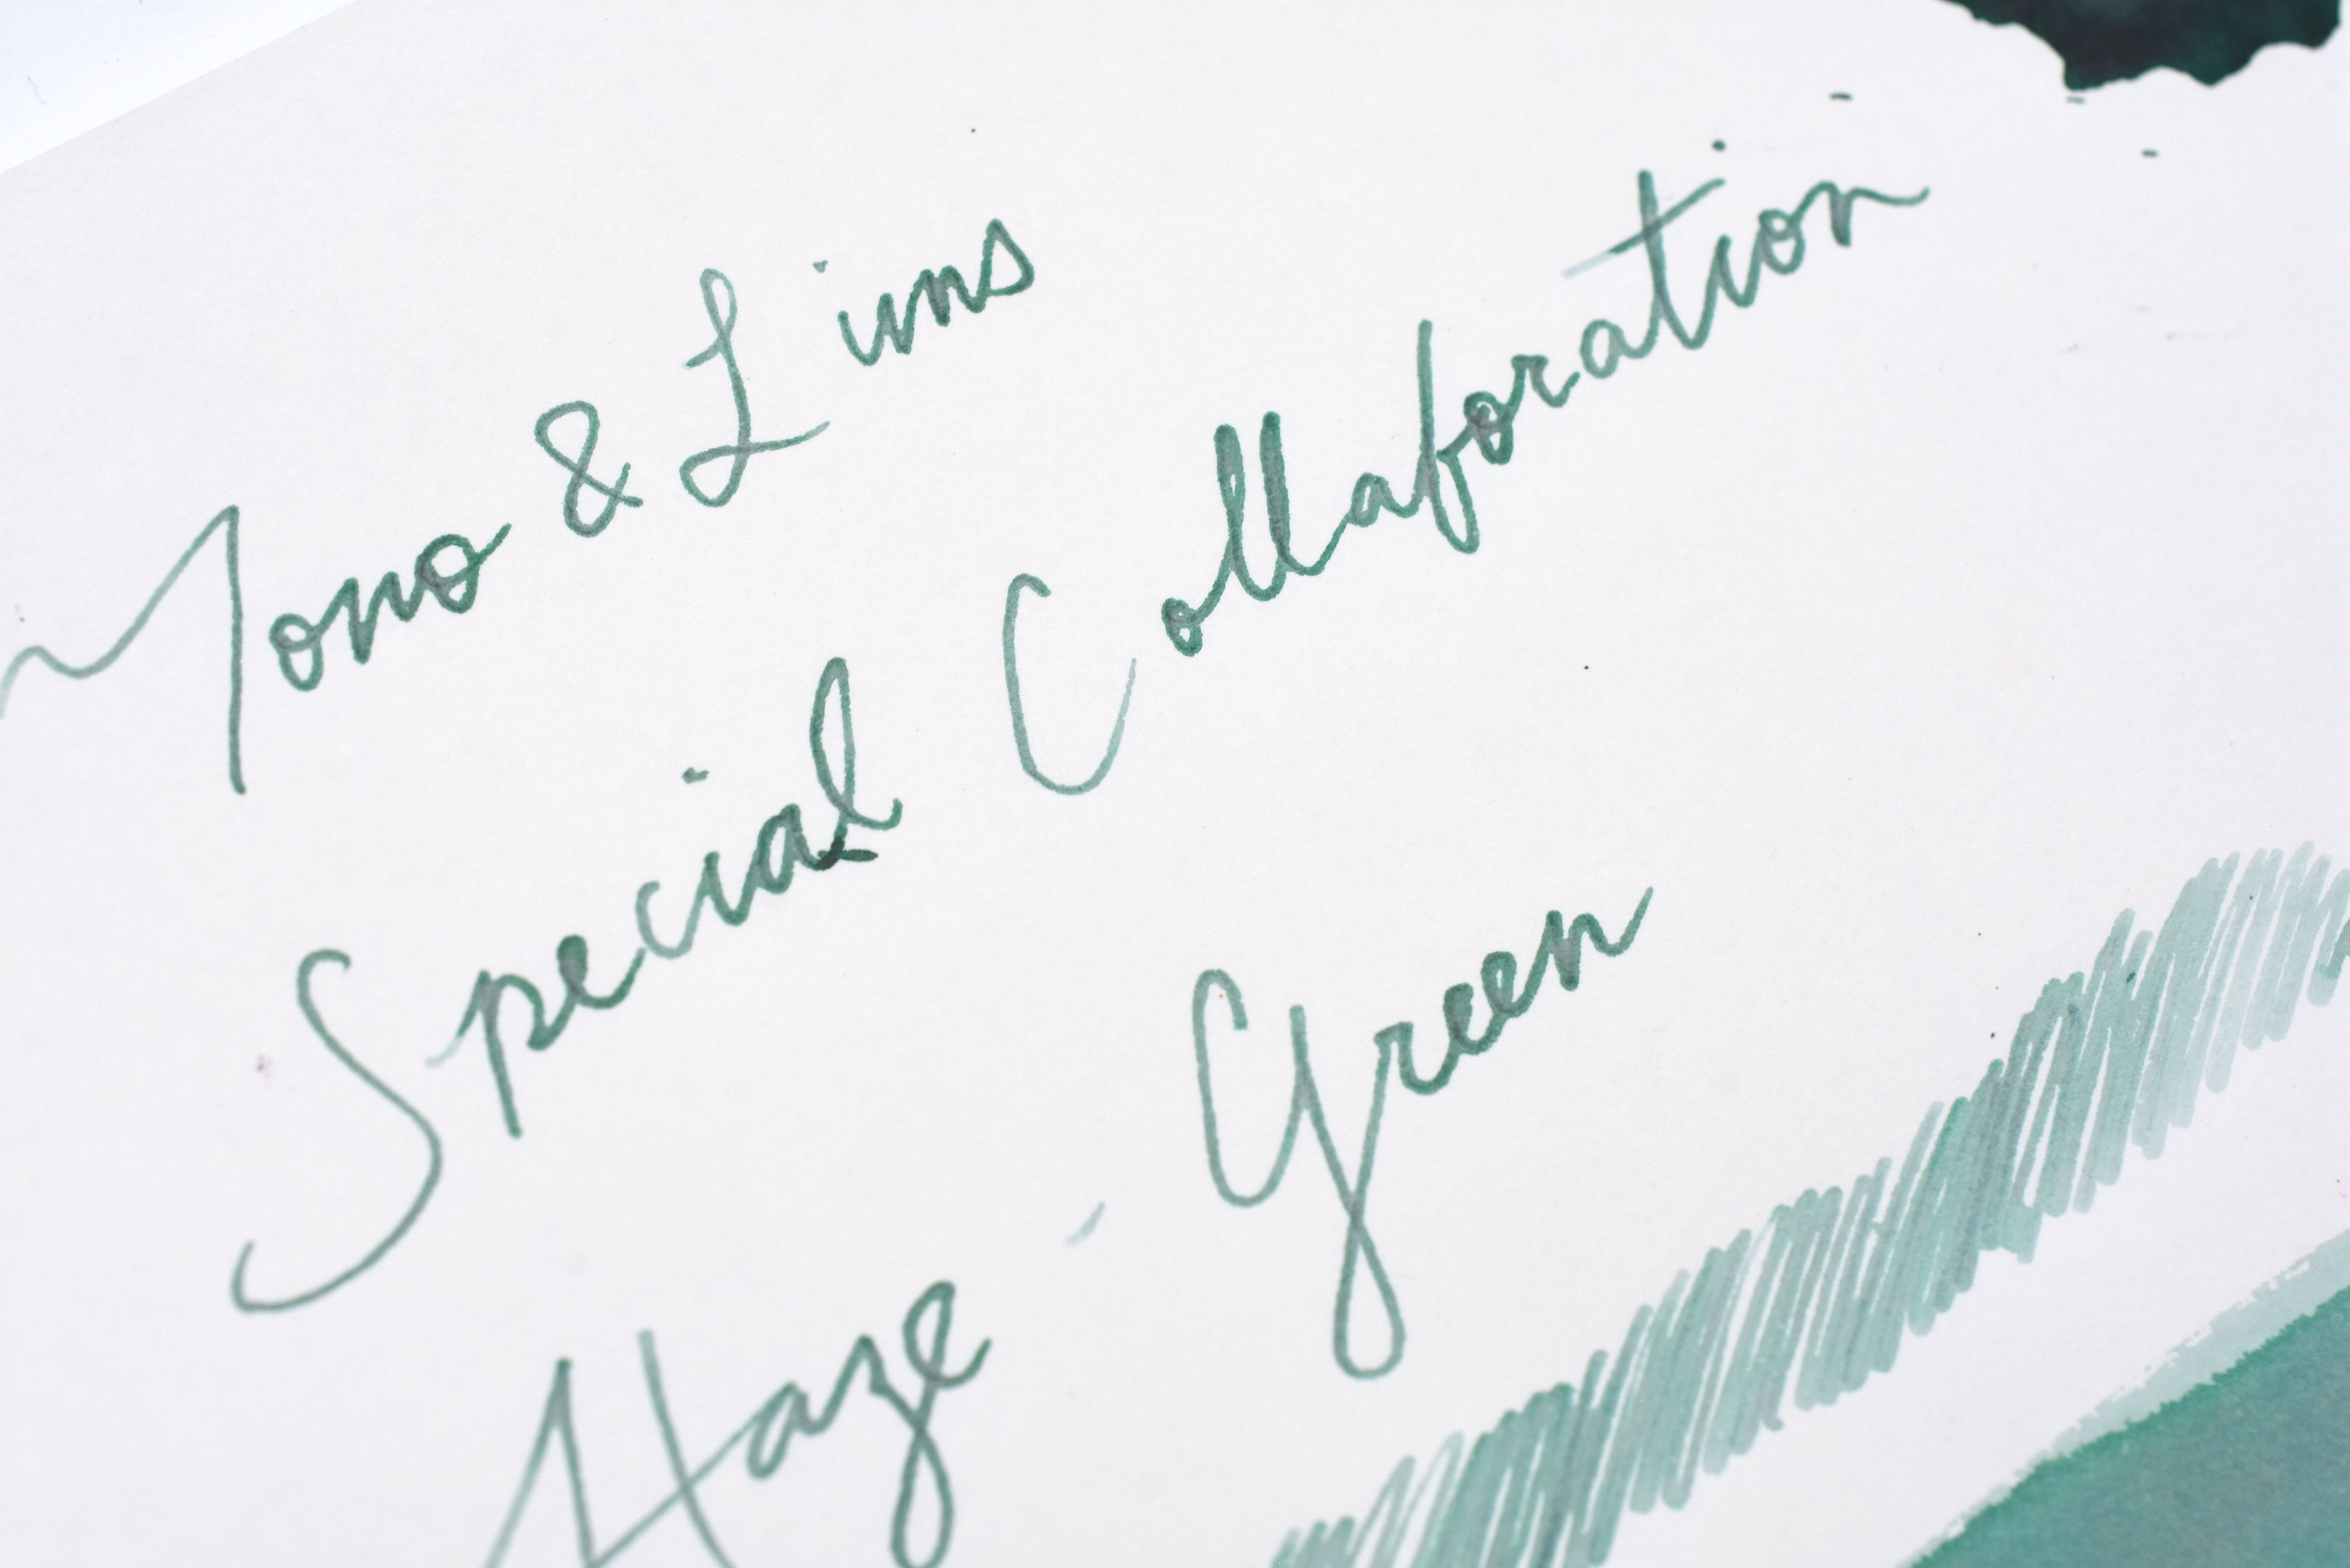 Tono & Lims
Special Collaboration
Haze - Green